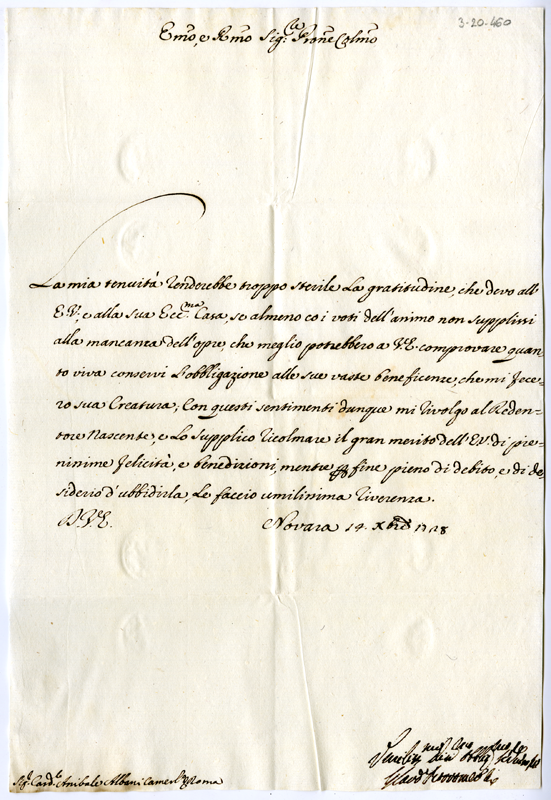 3-20-460
Emo, e Rmo Sig.re Prone Colmo
La mia tenuità renderebbe troppo sterile la gratitudine, che devo all'
E.V., e alla sua Ecc.ma Casa, se almeno co i voti dell'animo non supplissi
alla mancanza dell'opre, che meglio potrebbero a V.E. comprovare quan=
to viva conservi l'obbligazione alle sue vaste beneficenze, che mi fece=
ro sua Creatura; Con questi sentimenti dunque mi rivolgo al Reden=
tore Nascente, e lo supplico ricolmare il gran merito dell'E.V. di pie=
nissime felicità, e benedizioni, mentre per fine pieno di debito, e di de=
siderio d'ubbidirla, le faccio umilissima riverenza.
D.V.E. Novara 14. Xbre 1728
Sig.r Card.le Anibale Albani Camerl.o Roma